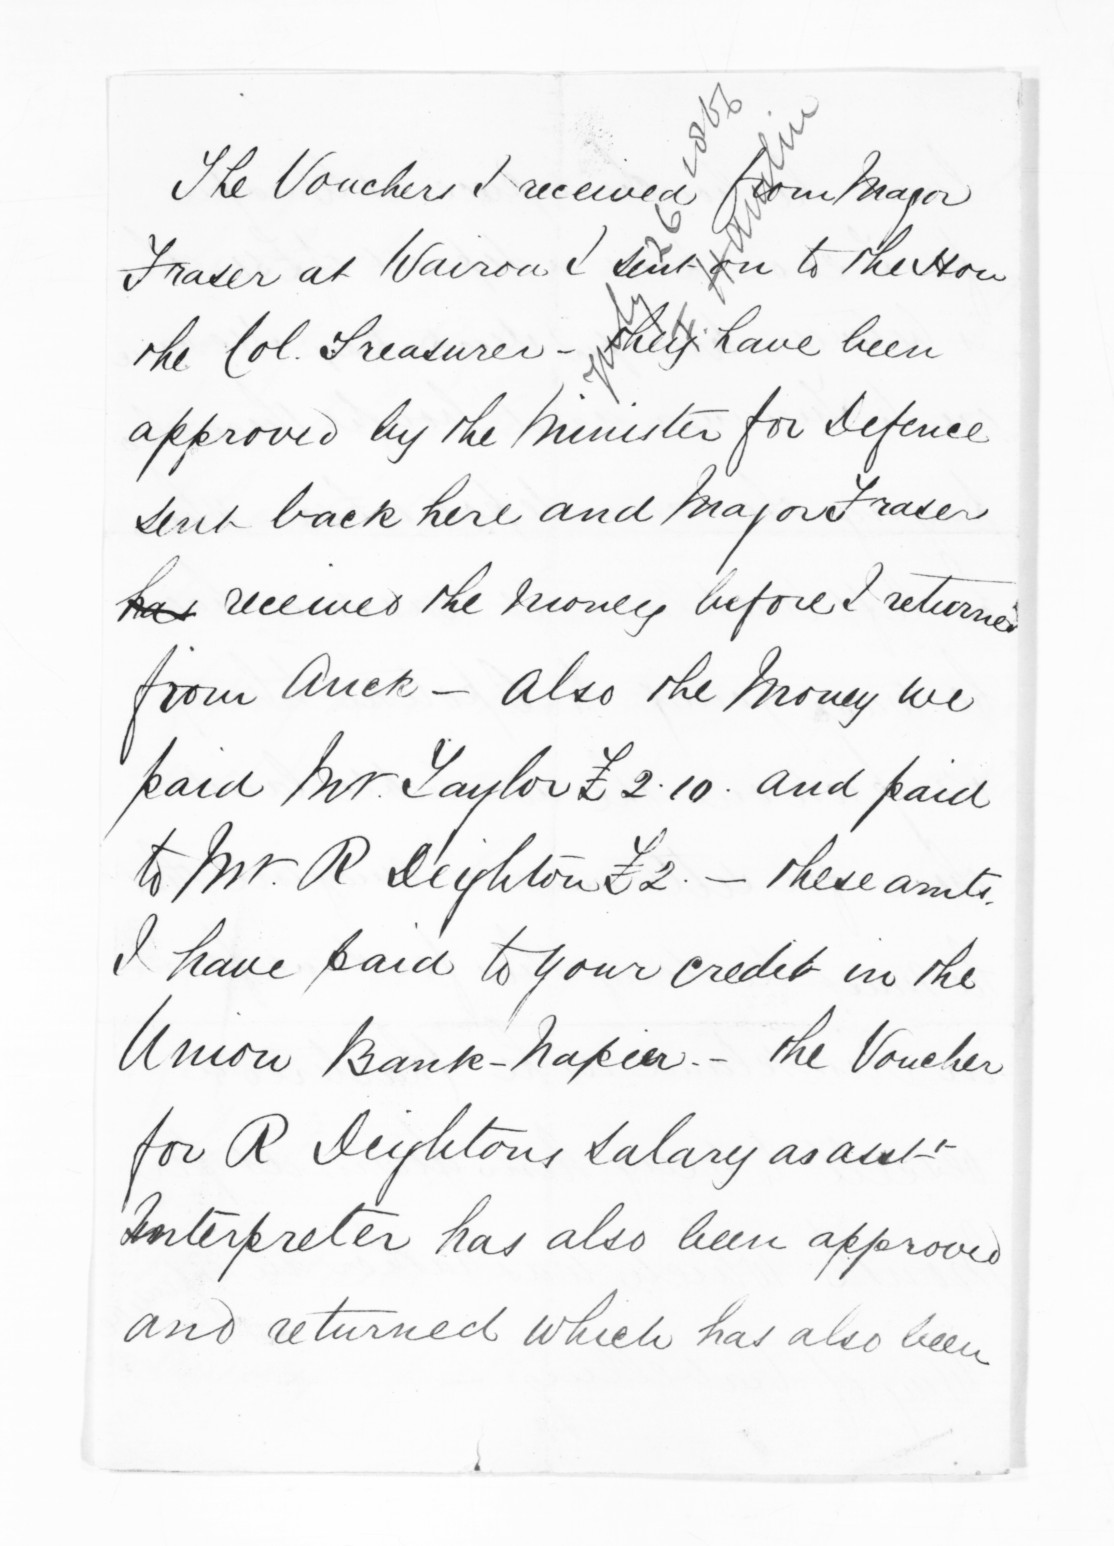 July 26 1866
F. E. Hamlin
The Vouchers I received from Major
Fraser at Wairoa I sent on to the Hon
the Col. Treasurer - they have been
approved by the Minister for Defence
sent back here and Major Fraser
has received the money before I returned
from Auck - also the Money we
paid Mr. Taylor £2.10. and paid
to Mr. R Deighton £2. - these amts.
I have paid to your credit in the
Union Bank - Napier. - the Voucher
for R Deightons salary as asst
Interpreter has also been approved
and returned which has also been